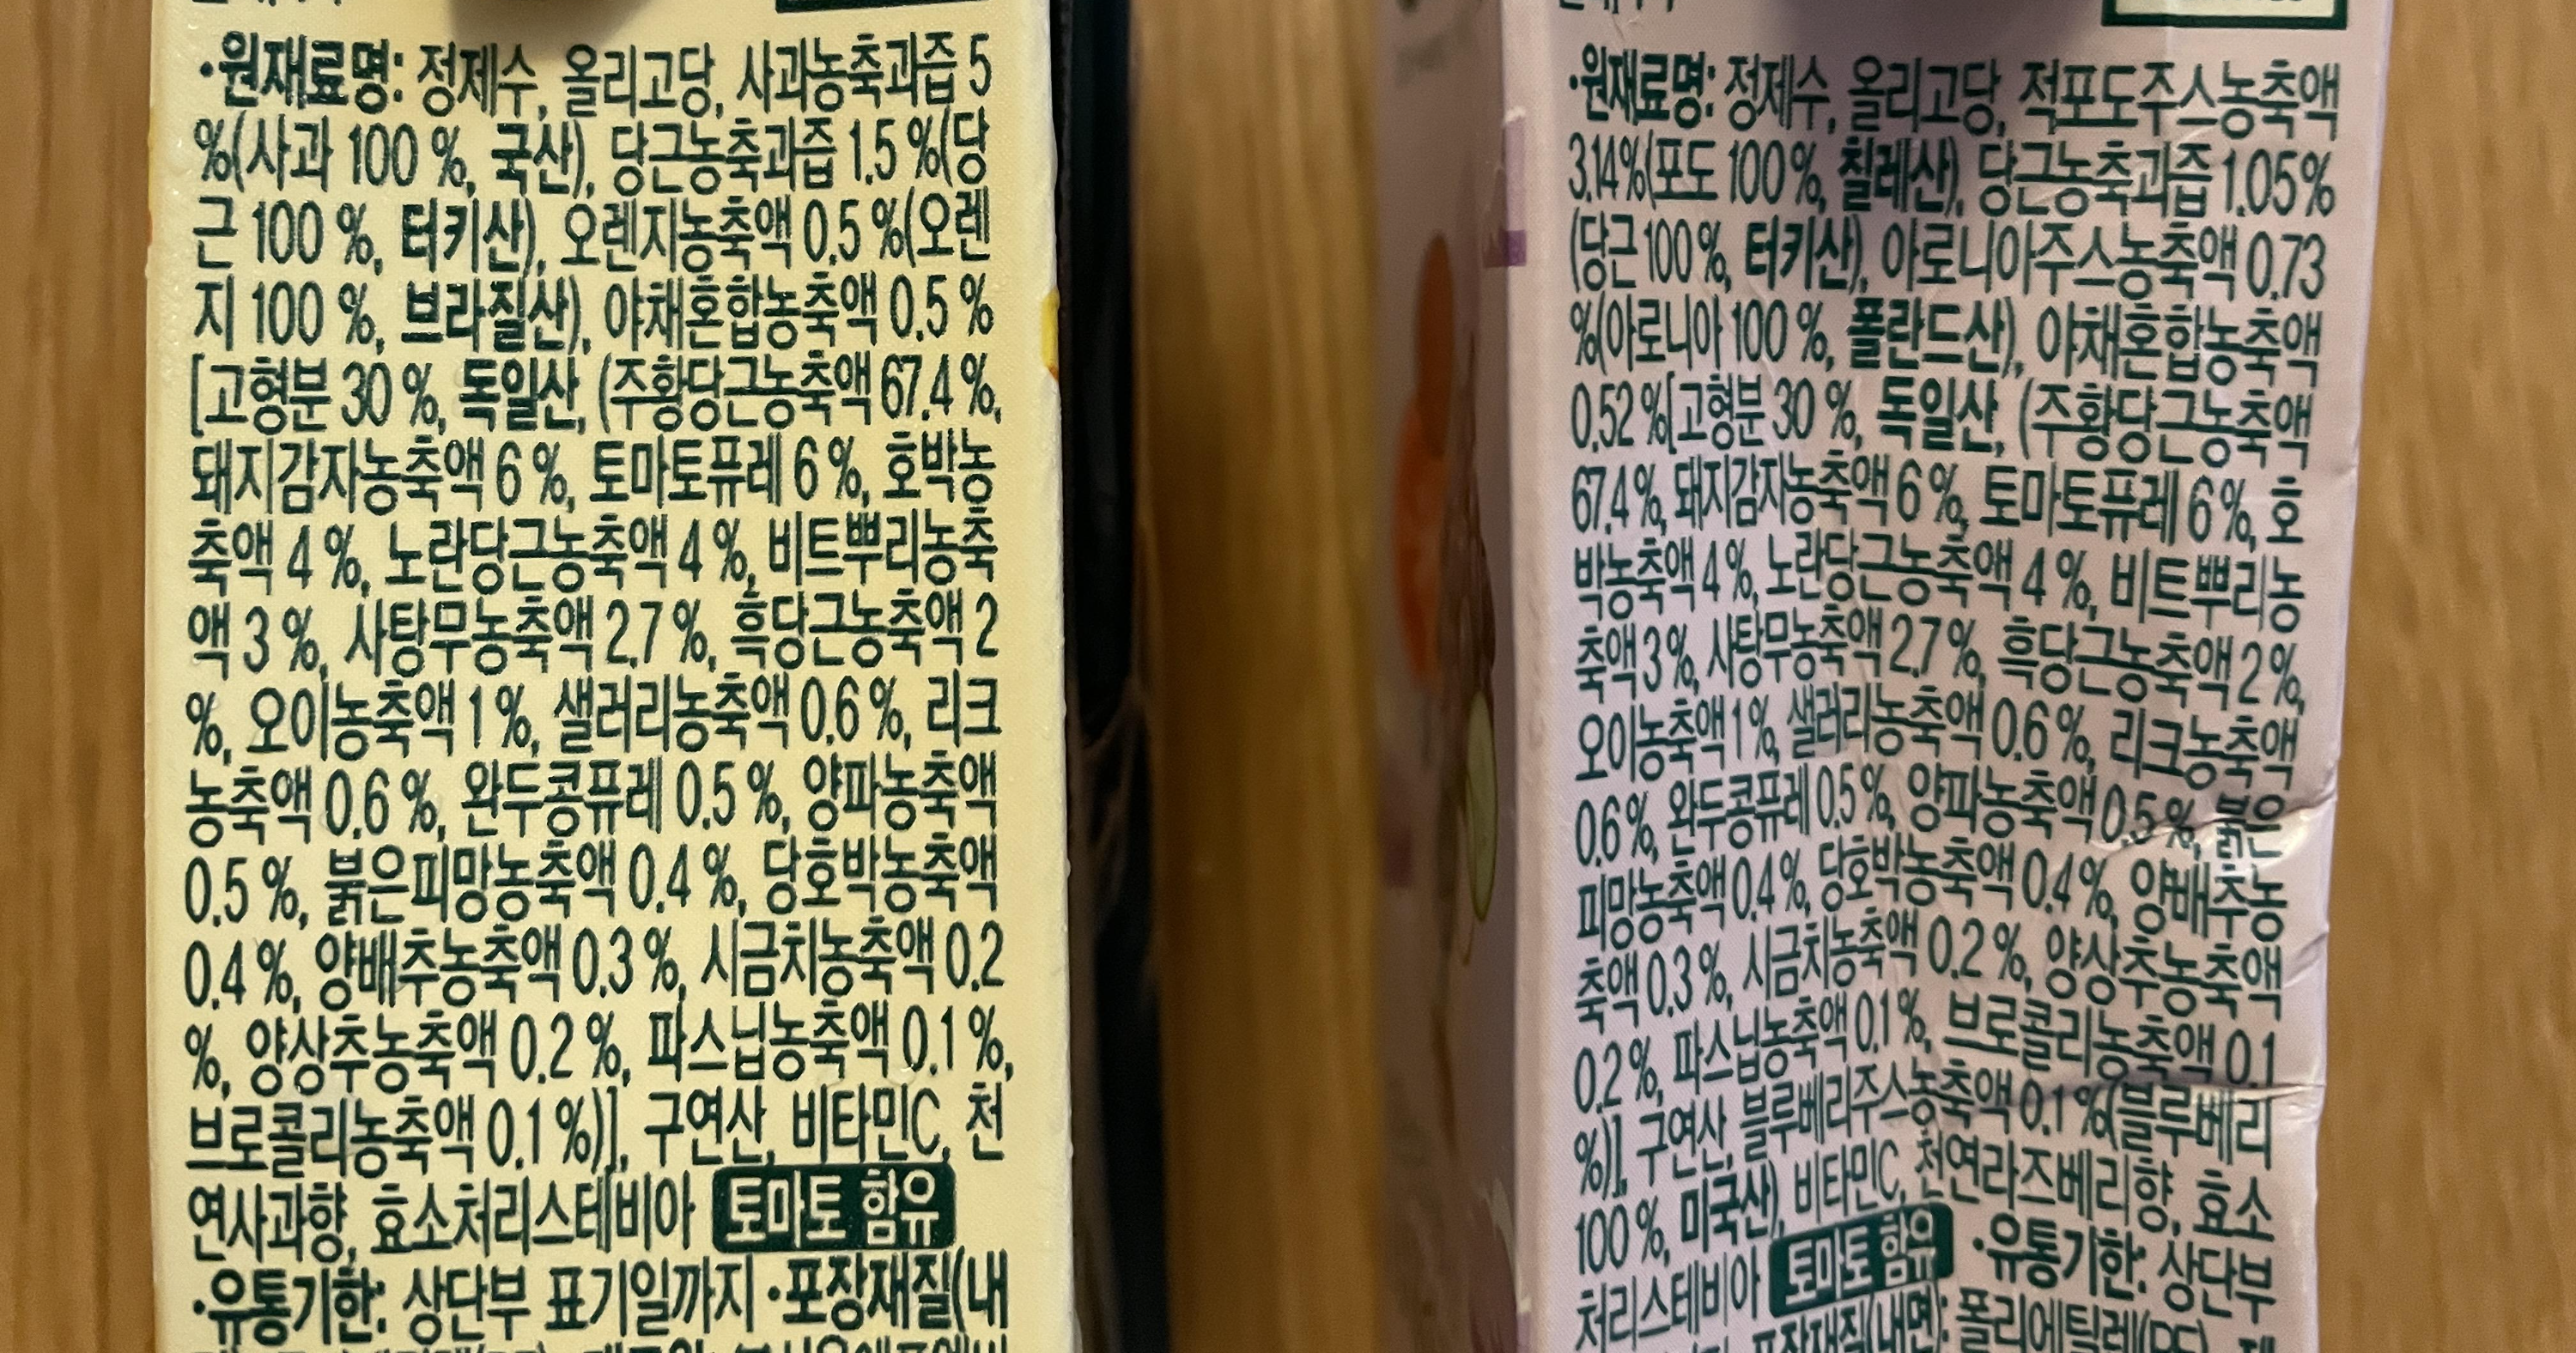 ·원재료명: 정제수, 올리고당, 사과농축과즙 5
%(사과 100 %, 국산), 당근농축과즙 1.5 %(당
근 100 %, 터키산), 오렌지농축액 0.5 %(오렌
지 100 %, 브라질산), 야채혼합농축액 0.5 %
[고형분 30 %, 독일산, (주황당근농축액 67.4 %,
돼지감자농축액 6 %, 토마토퓨레 6 %, 호박농
축액 4 %, 노란당근농축액 4 %, 비트뿌리농축
액 3 %, 사탕무농축액 2.7 %, 흑당근농축액 2
%, 오이농축액 1 %, 샐러리농축액 0.6 %, 리크
농축액 0.6 %, 완두콩퓨레 0.5 %, 양파농축액
0.5 %, 붉은피망농축액 0.4 %, 당호박농축액
0.4 %, 양배추농축액 0.3 %, 시금치농축액 0.2
%, 양상추농축액 0.2 %, 파스닙농축액 0.1 %,
브로콜리농축액 0.1 %)], 구연산, 비타민C, 천
연사과향, 효소처리스테비아 토마토 함유
·유통기한: 상단부 표기일까지 ·포장재질(내
·원재료명: 정제수, 올리고당, 적포도주스농축액
3.14%(포도 100 %, 칠레산), 당근농축과즙 1.05%
(당근 100 %, 터키산), 아로니아주스농축액 0.73
%(아로니아 100 %, 폴란드산), 야채혼합농축액
0.52 %[고형분 30 %, 독일산, (주황당근농축액
67.4 %, 돼지감자농축액 6 %, 토마토퓨레 6 %, 호
박농축액 4 %, 노란당근농축액 4 %, 비트뿌리농
축액 3 %, 사탕무농축액 2.7 %, 흑당근농축액 2 %,
오이농축액 1 %, 샐러리농축액 0.6 %, 리크농축액
0.6 %, 완두콩퓨레 0.5 %, 양파농축액 0.5 %, 붉은
피망농축액 0.4 %, 당호박농축액 0.4 %, 양배추농
축액 0.3 %, 시금치농축액 0.2 %, 양상추농축액
0.2 %, 파스닙농축액 0.1 %, 브로콜리농축액 0.1
%)], 구연산, 블루베리주스농축액 0.1 %(블루베리
100 %, 미국산), 비타민C, 천연라즈베리향, 효소
처리스테비아 토마토 함유 ·유통기한: 상단부
포장재질(내면): 폴리에틸렌(PE),